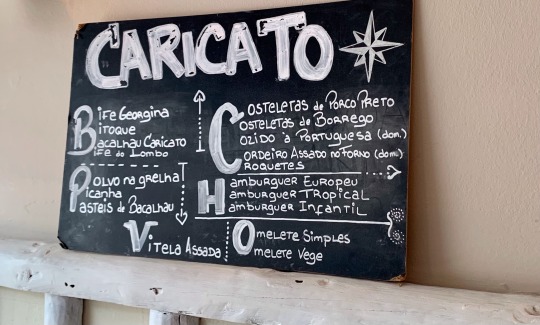 CARICATO
Bife Georgina
Bitoque
Bacalhau Caricato
Bife do Lombo
Polvo na grelha
Picanha
Pasteis de Bacalhau
Vitela Assada
Costeletas de Porco Preto
Costeletas de Borrego
Cozido à Portuguesa (dom.)
Cordeiro Assado no Forno (dom.)
Croquetes
Hamburguer Europeu
Hamburguer Tropical
Hamburguer Infantil
Omelete Simples
Omelete Vege